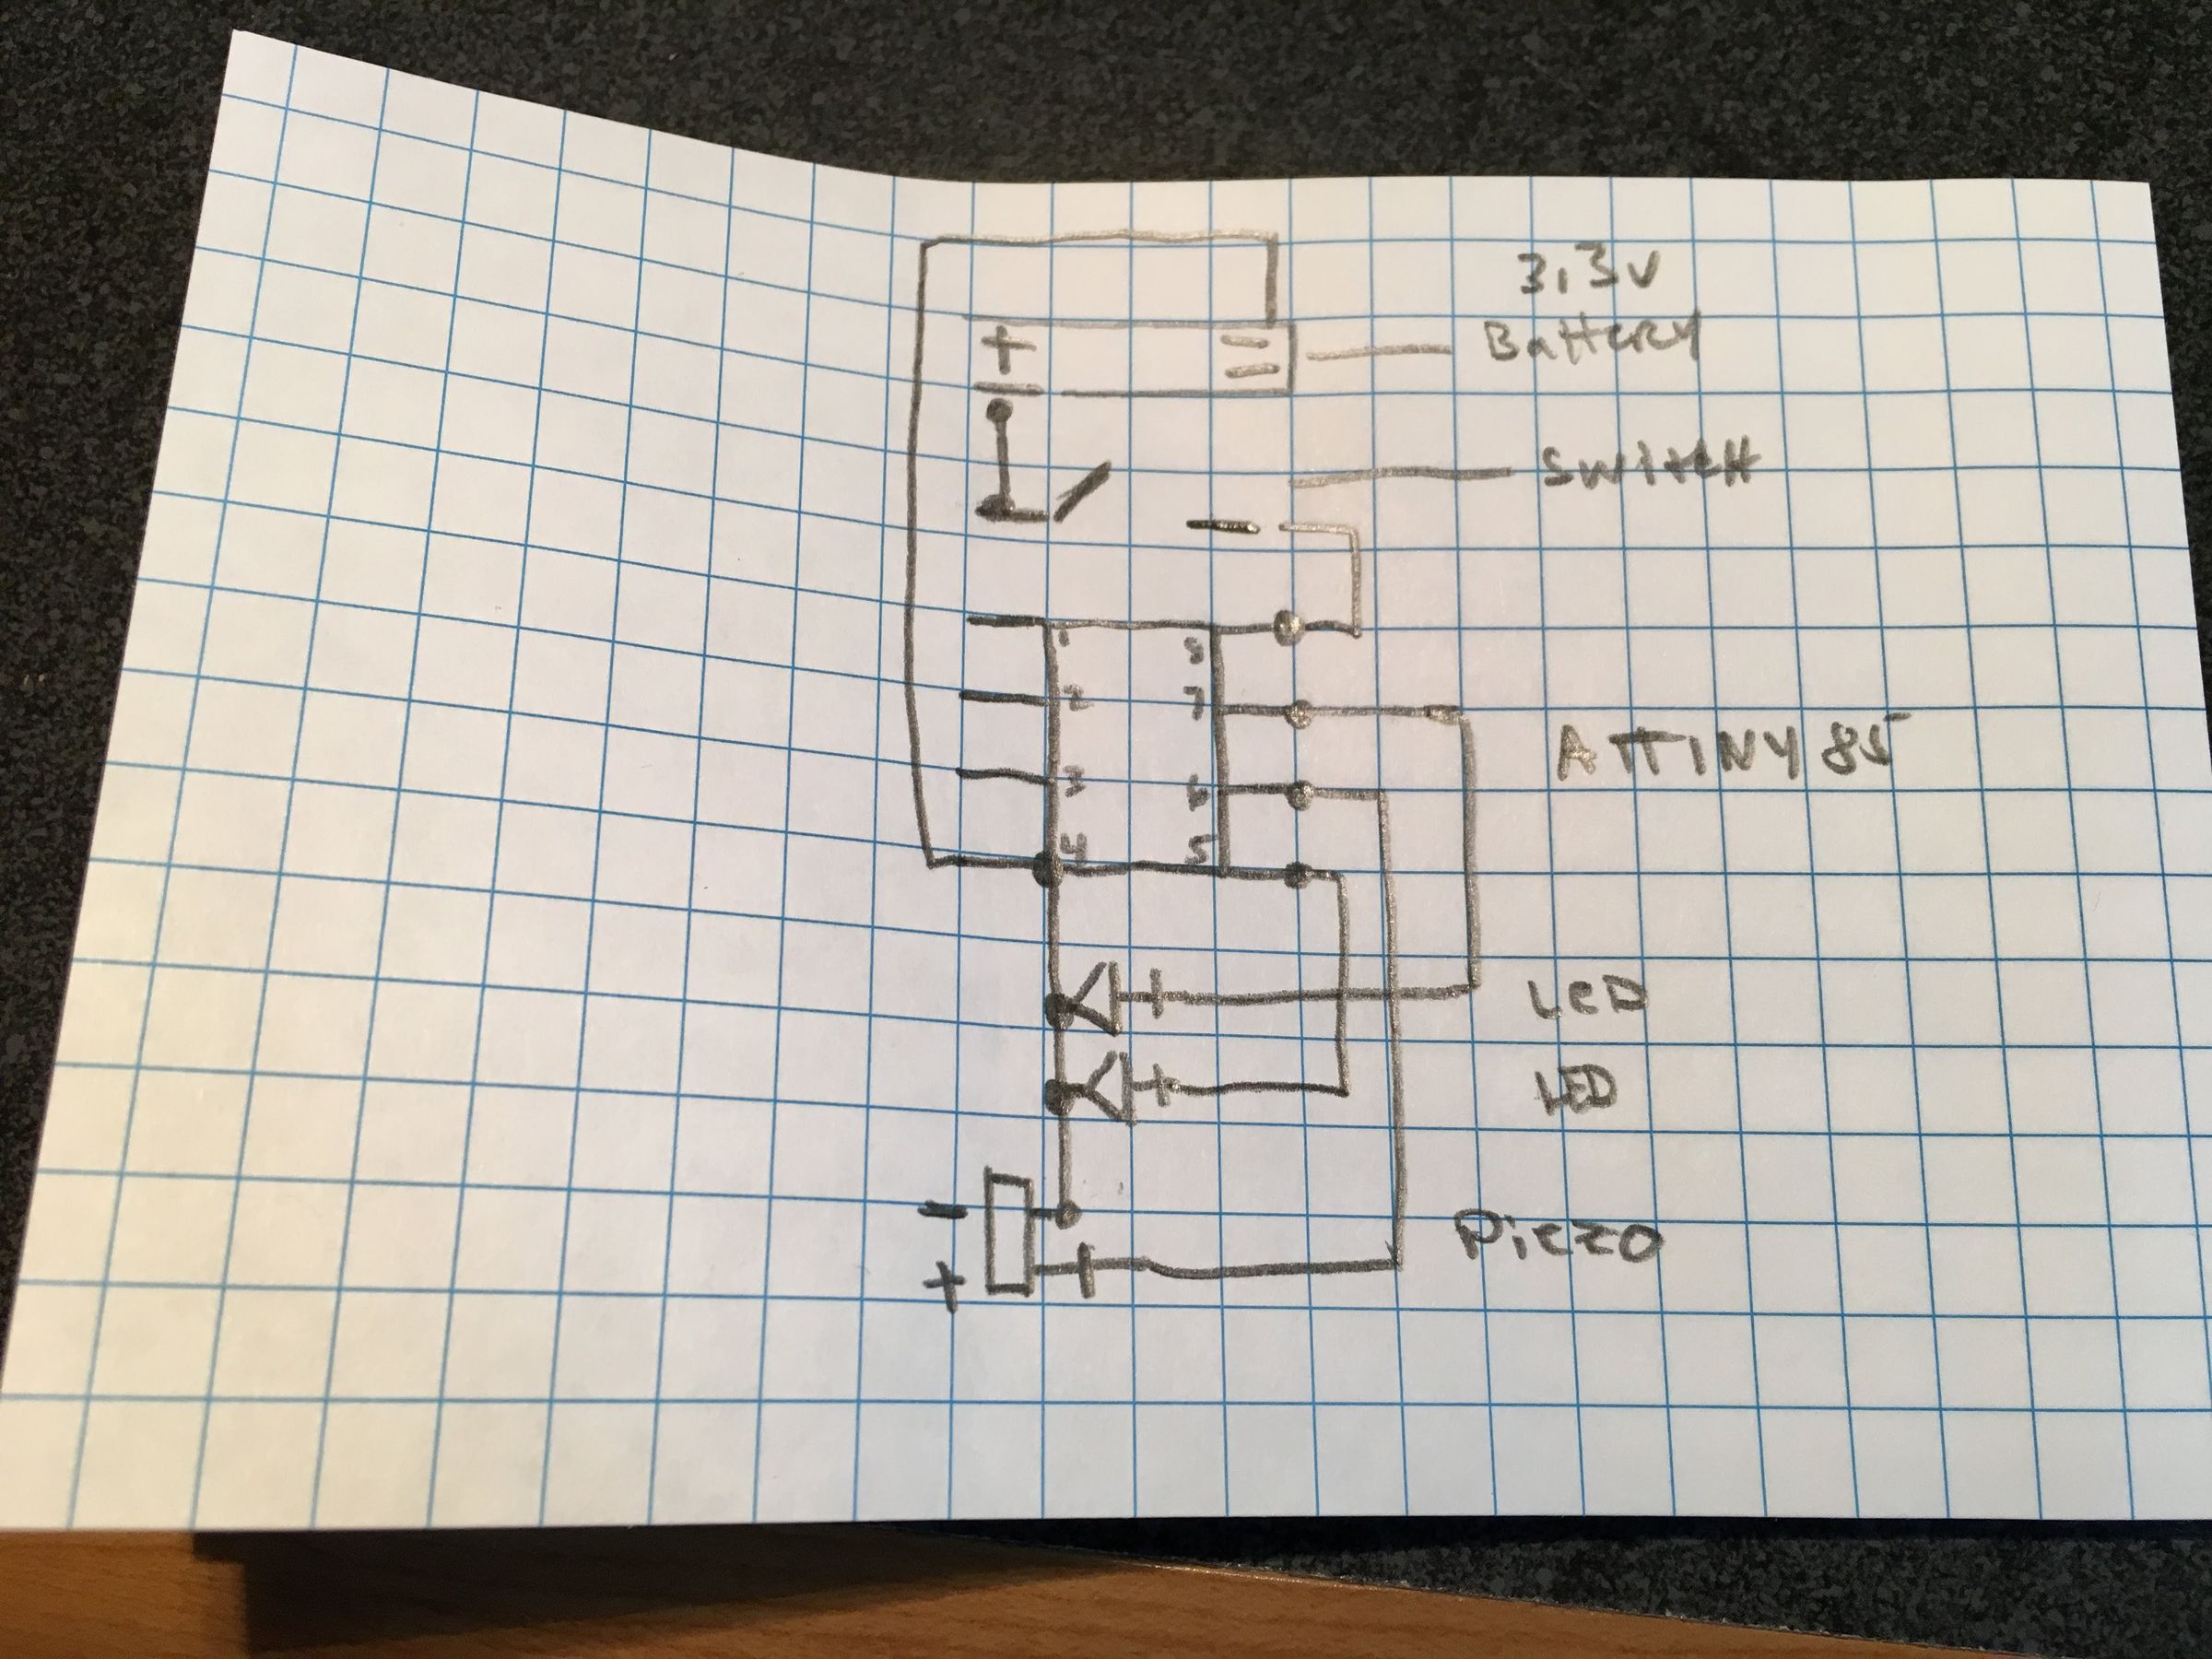 3,3V
Battery
+
=
SWItCH
1 8
2 7
ATTINY85
3 6
4 5
+
LeD
+
LED
-
Piezo
+